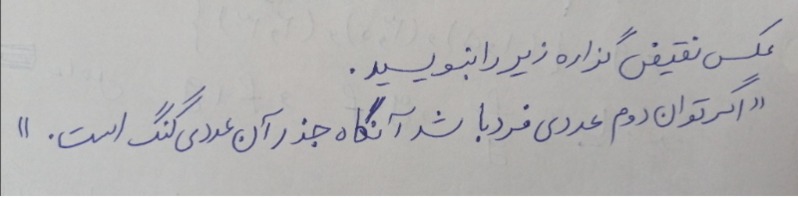 عکس نقیض گزاره زیر را بنویسید.
«اگر توان دوم عددی فرد باشد آنگاه جذر آن عددی گنگ است.»